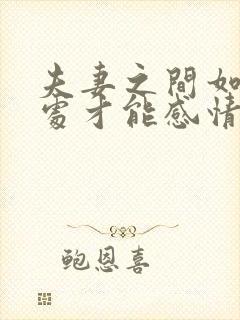 夫妻之間如
處才能感情
鲍恩喜